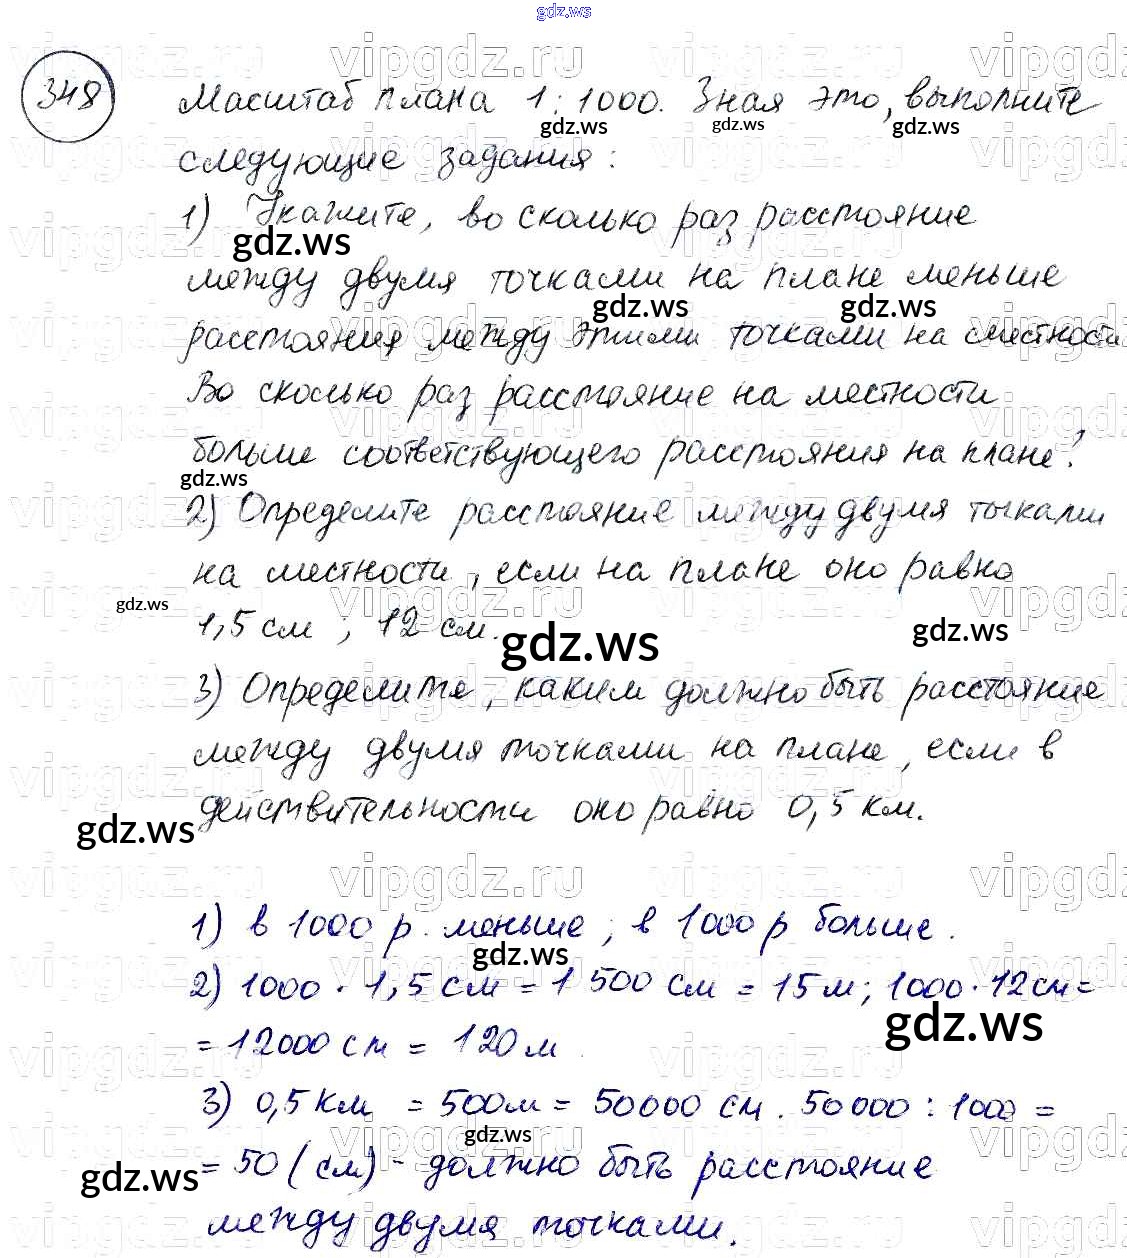 gdz.ws
348
Масштаб плана 1 : 1000. Зная это, выполните
следующие задания:
1) Укажите, во сколько раз расстояние
между двумя точками на плане меньше
расстояния между этими точками на местности
Во сколько раз расстояние на местности
больше соответствующего расстояния на плане?
2) Определите расстояние между двумя точками
на местности, если на плане оно равно
1,5 см ; 12 см.
3) Определите, каким должно быть расстояние
между двумя точками на плане, если в
действительности оно равно 0,5 км.
1) в 1000 р. меньше ; в 1000 р больше.
2) 1000 · 1,5 см = 1 500 см = 15 м ; 1000 · 12 см =
= 12000 см = 120 м.
3) 0,5 км = 500 м = 50000 см. 50000 : 1000 =
= 50 (см) - должно быть расстояние
между двумя точками.